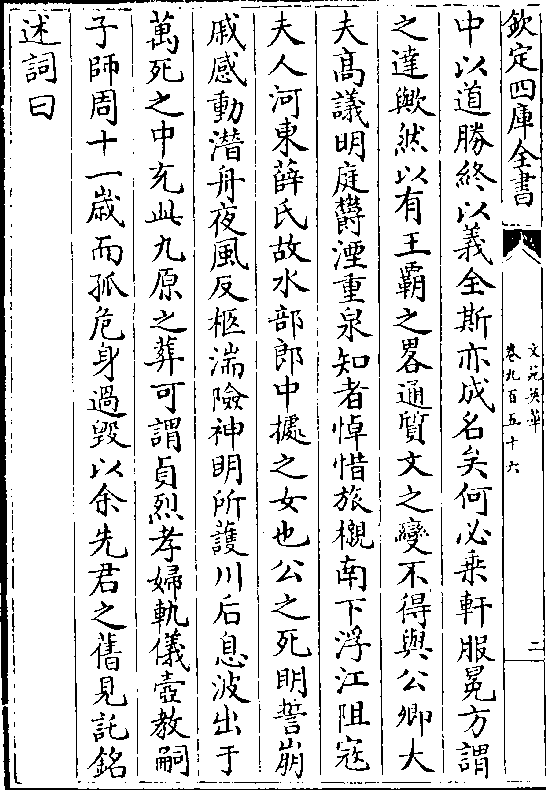 欽定四庫全書
文苑英華
卷九百五十六
二
中以道勝終以義全斯亦成名矣何必乗軒服冕方謂
之達歟然以有王霸之畧通質文之變不得與公卿大
夫髙議明庭欝湮重泉知者悼惜旅櫬南下浮江阻寇
夫人河東薛氏故水部郎中據之女也公之死明誓崩
戚感動潛舟夜風反柩湍險神明所護川后息波出于
萬死之中充此九原之葬可謂貞烈孝婦軌儀壼教嗣
子師周十一嵗而孤危身過毁以余先君之舊見託銘
述詞曰